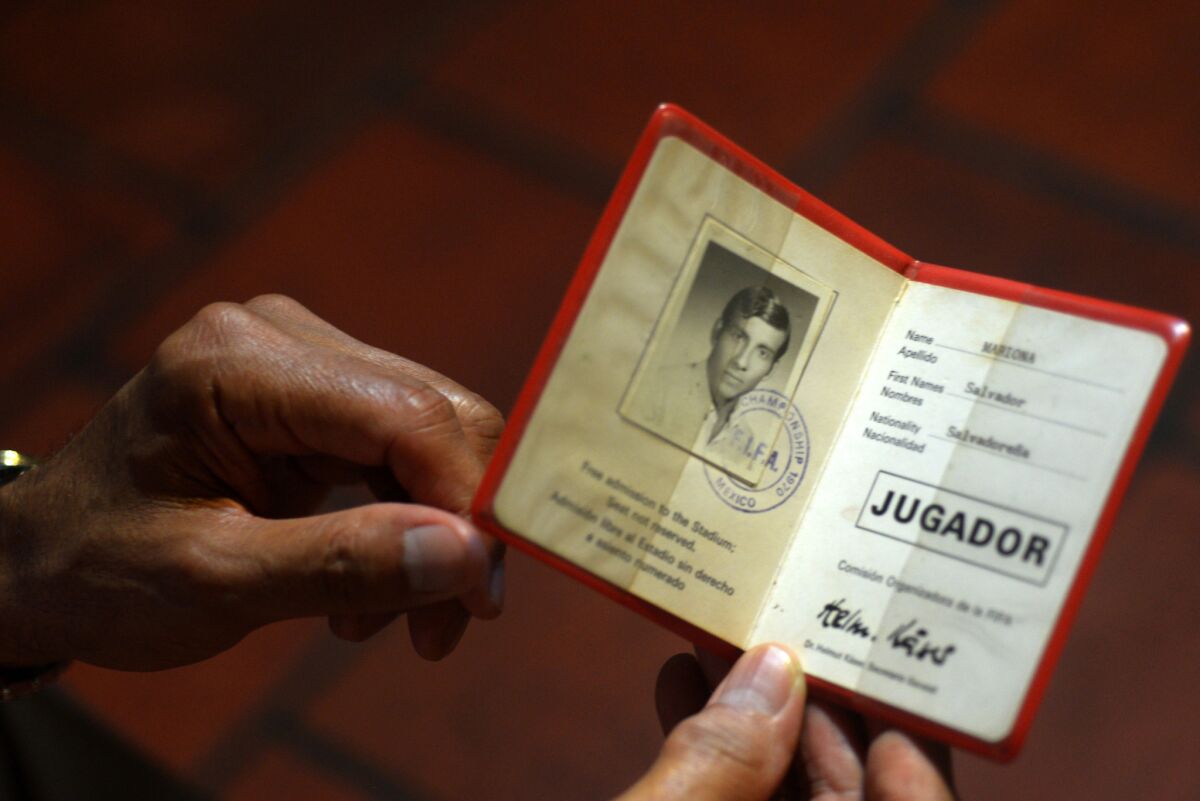 CHAMPIONSHIP 1970
F.I.F.A.
MEXICO
Free admission to the Stadium;
Seat not reserved.
Admisión libre al Estadio sin derecho
a asiento numerado
Name MARIONA
Apellido
First Names Salvador
Nombres
Nationality Salvadoreña
Nacionalidad
JUGADOR
Comisión Organizadora de la FIFA
Helm. Käser
Dr. Helmut Käser, Secretario General